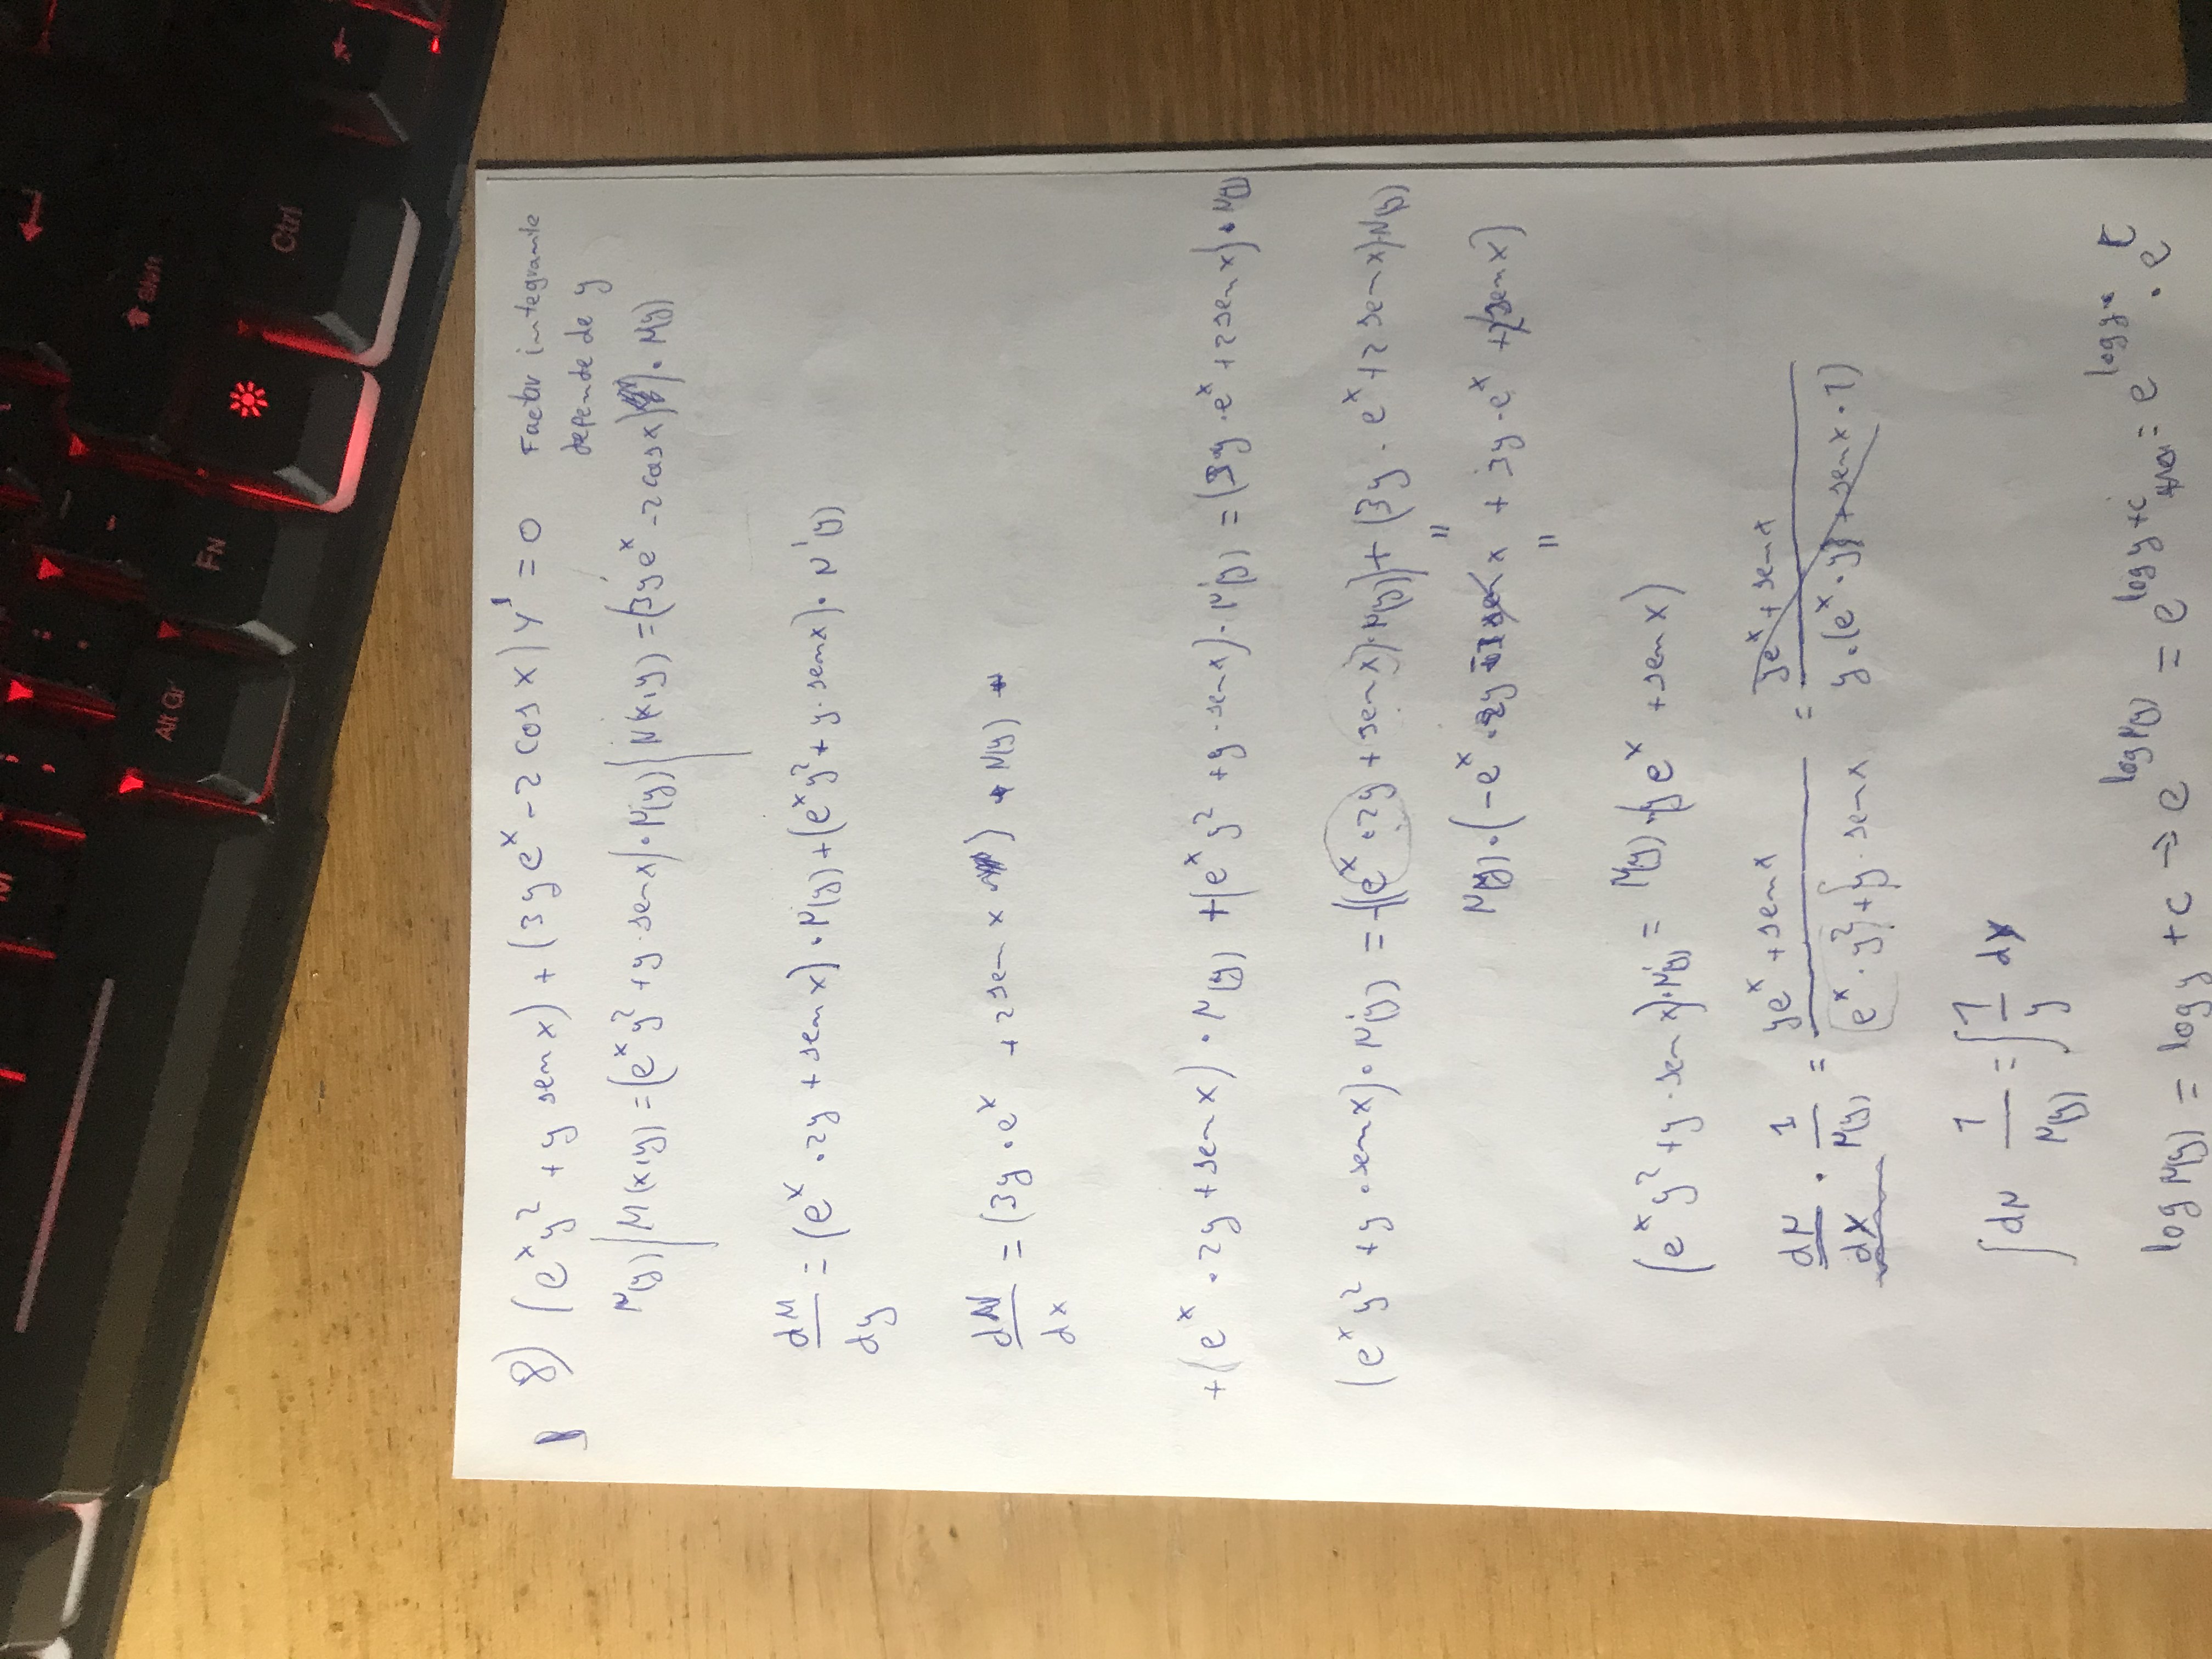 M
;
:
-
Alt Gr
Fn
Shift
Ctrl
8) (e^x y^2 + y sen x) + (3y e^x - 2 cos x) y' = 0 Factor integrante
depende de y
μ(y) | M(x,y) = (e^x y^2 + y · sen x) · μ(y) | N(x,y) = (3y e^x - 2 cos x) · μ(y)
dM/dy = (e^x · 2y + sen x) · μ(y) + (e^x y^2 + y · sen x) · μ'(y)
dN/dx = (3y · e^x + 2 sen x) · μ(y)
+(e^x · 2y + sen x) · μ(y) + (e^x y^2 + y · sen x) · μ'(y) = (3y · e^x + 2 sen x) · μ(y)
(e^x y^2 + y · sen x) · μ'(y) = -((e^x · 2y + sen x) · μ(y)) + (3y · e^x + 2 sen x) · μ(y)
"
μ(y) · (-e^x · 2y - sen x + 3y · e^x + 2 sen x)
"
(e^x y^2 + y · sen x) · μ'(y) = μ(y) · (y e^x + sen x)
dμ/dy · 1/μ(y) = (y e^x + sen x)/(e^x · y^2 + y · sen x) = (y e^x + sen x)/(y · (e^x · y + sen x · 1))
∫ dμ 1/μ(y) = ∫ 1/y dy
log μ(y) = log y + c → e^(log μ(y)) = e^(log y + c) = e^(log y) · e^c